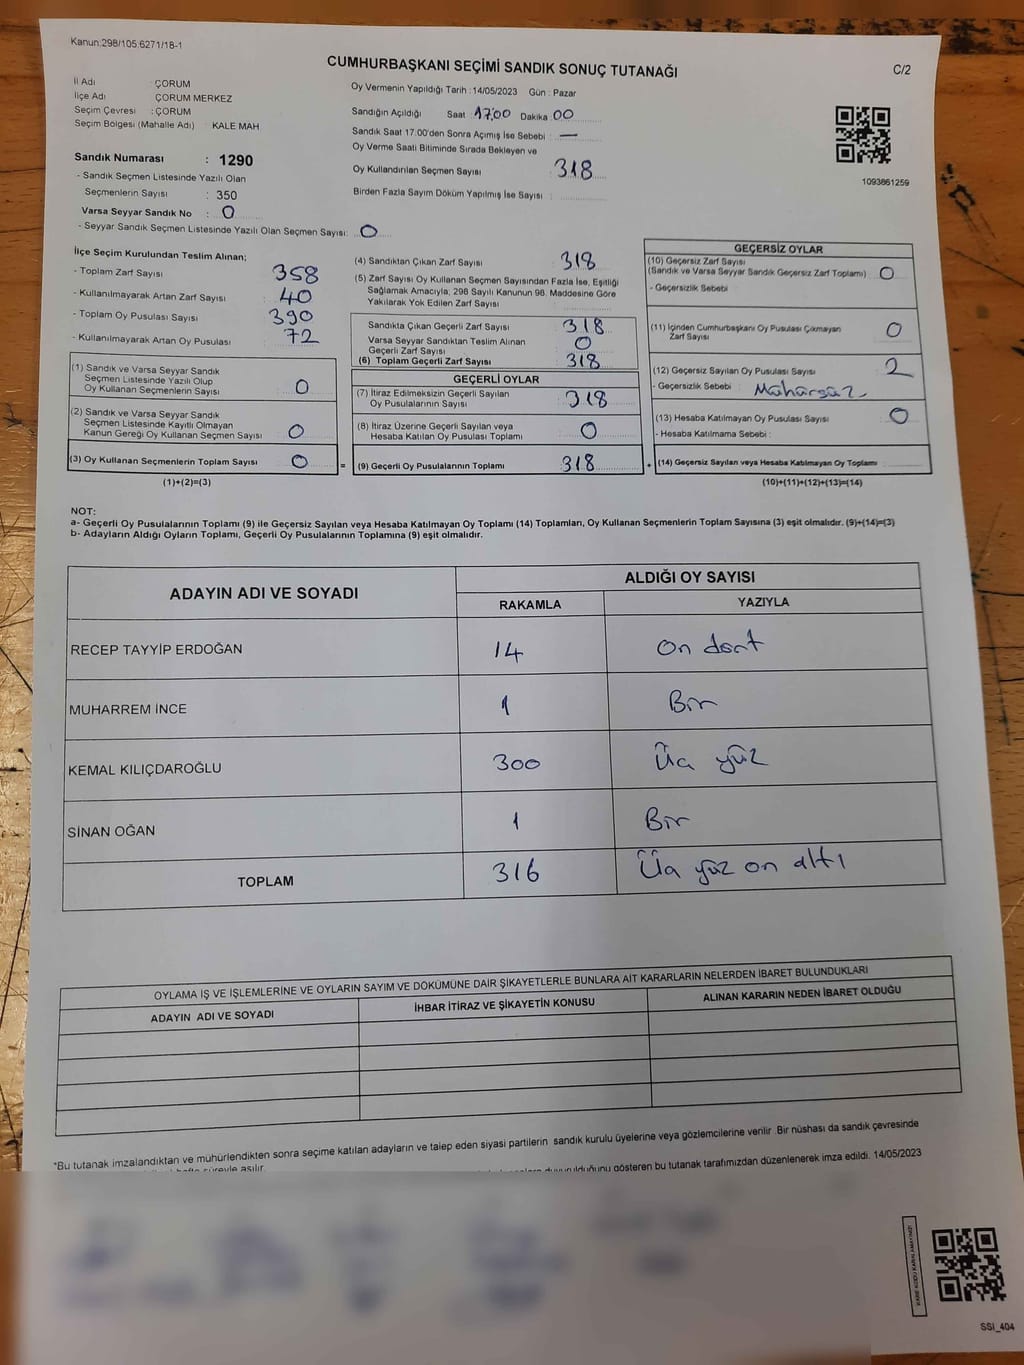 Kanun:298/105:6271/18-1
CUMHURBAŞKANI SEÇİMİ SANDIK SONUÇ TUTANAĞI
C/2
İl Adı : ÇORUM
İlçe Adı : ÇORUM MERKEZ
Seçim Çevresi : ÇORUM
Seçim Bölgesi (Mahalle Adı) : KALE MAH
Sandık Numarası : 1290
- Sandık Seçmen Listesinde Yazılı Olan
Seçmenlerin Sayısı : 350
Varsa Seyyar Sandık No : 0
- Seyyar Sandık Seçmen Listesinde Yazılı Olan Seçmen Sayısı: 0
Oy Vermenin Yapıldığı Tarih : 14/05/2023 Gün : Pazar
Sandığın Açıldığı Saat 17,00 Dakika 00
Sandık Saat 17:00'den Sonra Açımış İse Sebebi : —
Oy Verme Saati Bitiminde Sırada Bekleyen ve
Oy Kullandırılan Seçmen Sayısı : 318
Birden Fazla Sayım Döküm Yapılmış İse Sayısı :
1093861259
İlçe Seçim Kurulundan Teslim Alınan;
- Toplam Zarf Sayısı 358
- Kullanılmayarak Artan Zarf Sayısı 40
- Toplam Oy Pusulası Sayısı 390
- Kullanılmayarak Artan Oy Pusulası 72
(1) Sandık ve Varsa Seyyar Sandık
Seçmen Listesinde Yazılı Olup
Oy Kullanan Seçmenlerin Sayısı 0
(2) Sandık ve Varsa Seyyar Sandık
Seçmen Listesinde Kayıtlı Olmayan
Kanun Gereği Oy Kullanan Seçmen Sayısı 0
(3) Oy Kullanan Seçmenlerin Toplam Sayısı 0
(1)+(2)=(3)
(4) Sandıktan Çıkan Zarf Sayısı 318
(5) Zarf Sayısı Oy Kullanan Seçmen Sayısından Fazla İse, Eşitliği
Sağlamak Amacıyla, 298 Sayılı Kanunun 98. Maddesine Göre
Yakılarak Yok Edilen Zarf Sayısı
Sandıkta Çıkan Geçerli Zarf Sayısı 318
Varsa Seyyar Sandıktan Teslim Alınan
Geçerli Zarf Sayısı 0
(6) Toplam Geçerli Zarf Sayısı 318
GEÇERLİ OYLAR
(7) İtiraz Edilmeksizin Geçerli Sayılan
Oy Pusulalarının Sayısı 318
(8) İtiraz Üzerine Geçerli Sayılan veya
Hesaba Katılan Oy Pusulası Toplamı 0
= (9) Geçerli Oy Pusulalarının Toplamı 318 +
GEÇERSİZ OYLAR
(10) Geçersiz Zarf Sayısı
(Sandık ve Varsa Seyyar Sandık Geçersiz Zarf Toplamı) 0
- Geçersizlik Sebebi :
(11) İçinden Cumhurbaşkanı Oy Pusulası Çıkmayan
Zarf Sayısı 0
(12) Geçersiz Sayılan Oy Pusulası Sayısı 2
- Geçersizlik Sebebi : Mühürsüz
(13) Hesaba Katılmayan Oy Pusulası Sayısı 0
- Hesaba Katılmama Sebebi :
(14) Geçersiz Sayılan veya Hesaba Katılmayan Oy Toplamı
(10)+(11)+(12)+(13)=(14)
NOT:
a- Geçerli Oy Pusulalarının Toplamı (9) ile Geçersiz Sayılan veya Hesaba Katılmayan Oy Toplamı (14) Toplamları, Oy Kullanan Seçmenlerin Toplam Sayısına (3) eşit olmalıdır. (9)+(14)=(3)
b- Adayların Aldığı Oyların Toplamı, Geçerli Oy Pusulalarının Toplamına (9) eşit olmalıdır.
ADAYIN ADI VE SOYADI
ALDIĞI OY SAYISI
RAKAMLA YAZIYLA
RECEP TAYYİP ERDOĞAN 14 On dört
MUHARREM İNCE 1 Bir
KEMAL KILIÇDAROĞLU 300 Üç yüz
SİNAN OĞAN 1 Bir
TOPLAM 316 Üç yüz on altı
OYLAMA İŞ VE İŞLEMLERİNE VE OYLARIN SAYIM VE DÖKÜMÜNE DAİR ŞİKAYETLERLE BUNLARA AİT KARARLARIN NELERDEN İBARET BULUNDUKLARI
ADAYIN ADI VE SOYADI
İHBAR İTİRAZ VE ŞİKAYETİN KONUSU
ALINAN KARARIN NEDEN İBARET OLDUĞU
*Bu tutanak imzalandıktan ve mühürlendikten sonra seçime katılan adayların ve talep eden siyasi partilerin sandık kurulu üyelerine veya gözlemcilerine verilir. Bir nüshası da sandık çevresinde
süreyle asılır.
duyurulduğunu gösteren bu tutanak tarafımızdan düzenlenerek imza edildi. 14/05/2023
KARE KODU KARALAMAYINIZ!
SSİ_404